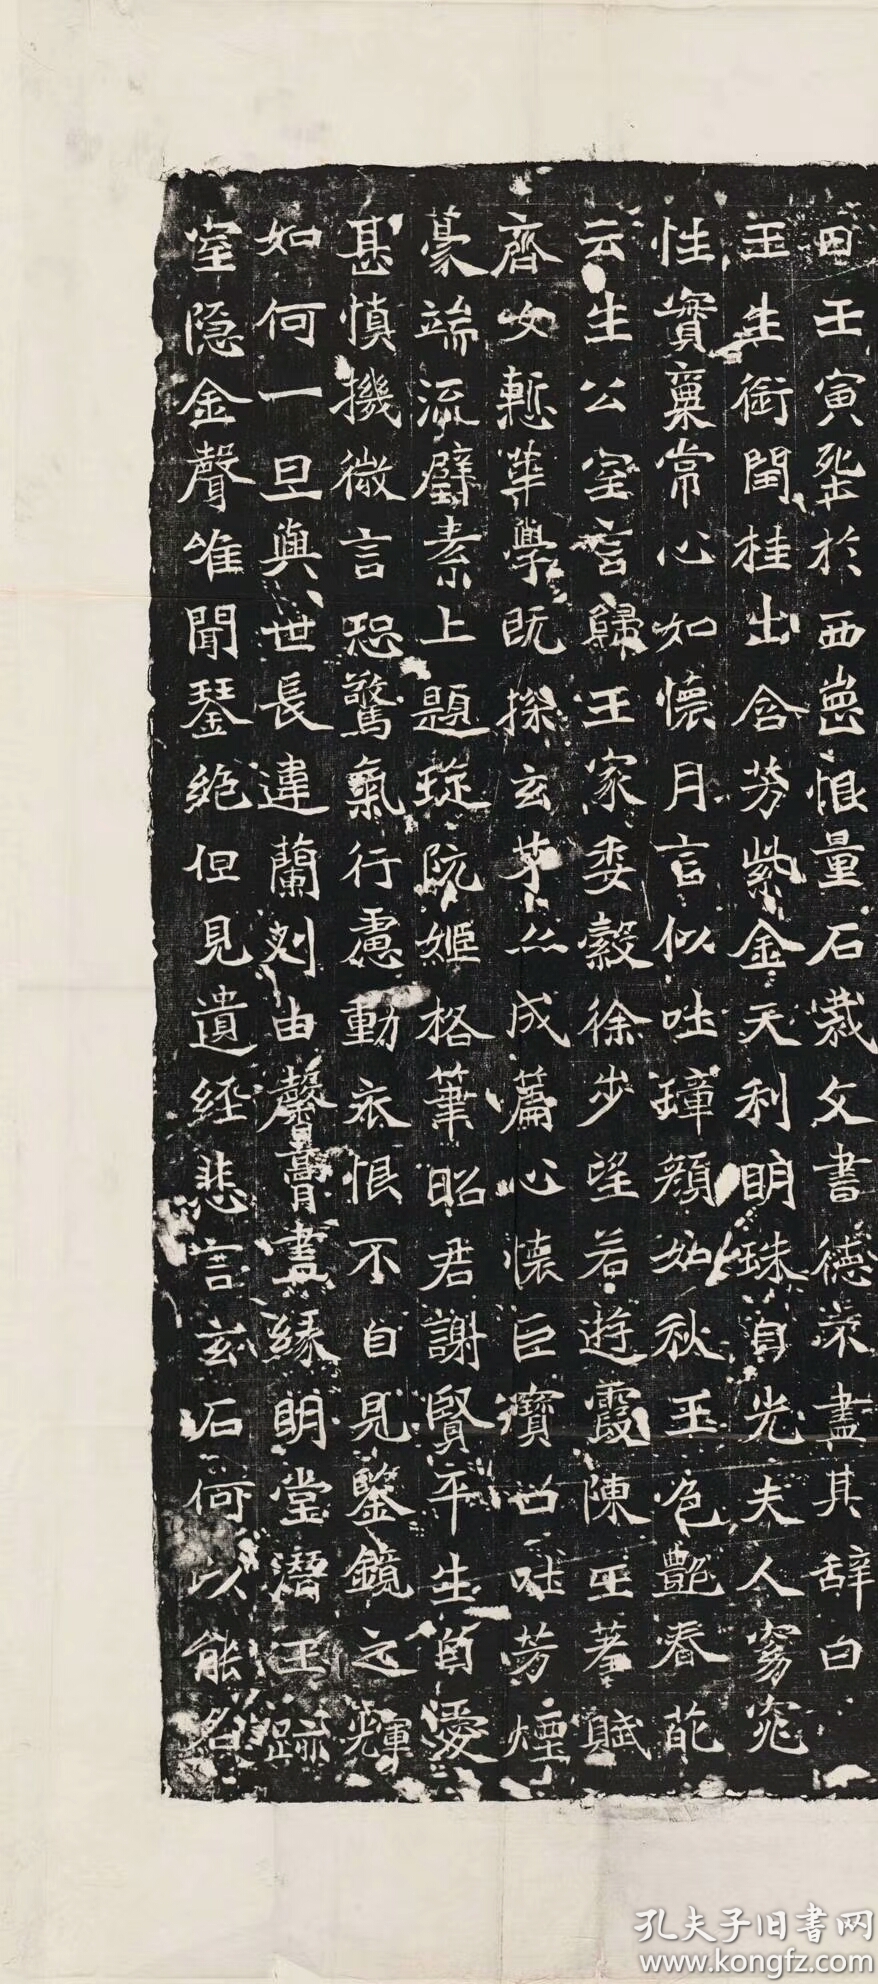 日壬寅窆於西崗恨量石裁文書德不盡其辞曰
玉生衘閏桂出含芳紫金天利明珠自光夫人窈窕
性實稟常心如懷月言似吐璋顔如秋玉色艷春葩
云生公室言歸王家委縠徐步望若遊霞陳王著賦
齊女慙華學既探玄才亦成篇心懷巨寶口吐芳煙
豪端流璧素上題琁阮姬格筆昭君謝賢平生自愛
甚慎機微言恐驚氣行慮動衣恨不自見鑒鏡之輝
如何一旦與世長違蘭刈由馨膏盡緣明堂潛玉跡
室隐金聲唯聞琴絶但見遺經悲言玄石何以能名
孔夫子旧書网
www.kongfz.com